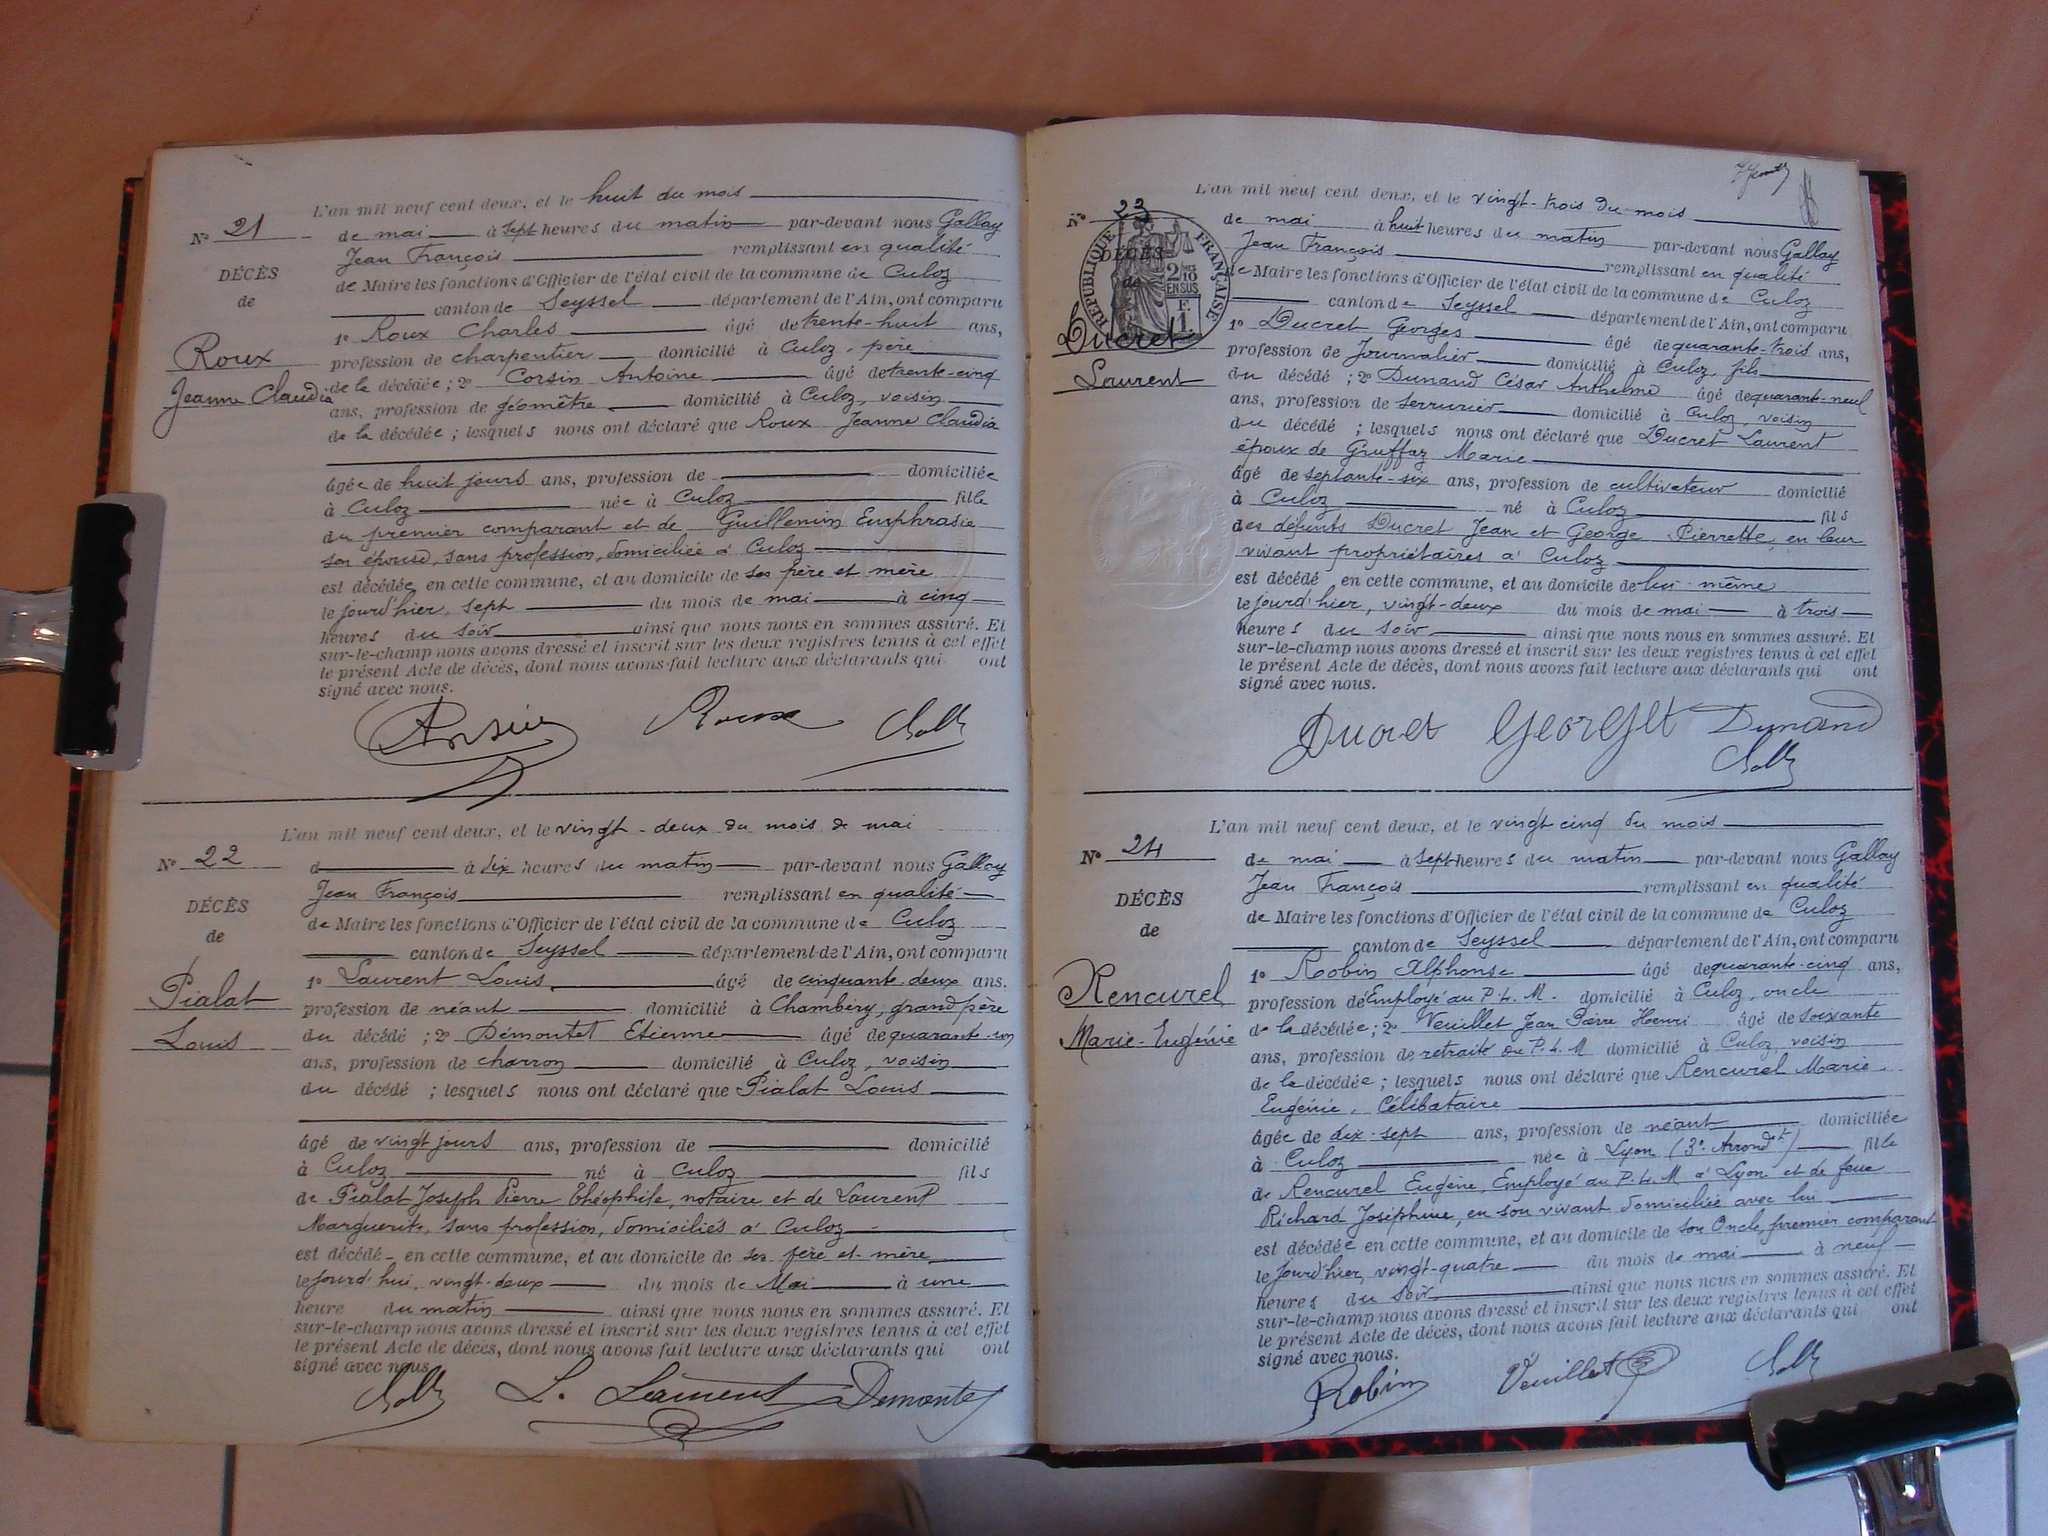 L'an mil neuf cent deux, et le huit du mois
N° 21
de mai à sept heures du matin par-devant nous Gallay
Jean François remplissant en qualité
DÉCÈS
de Maire les fonctions d'Officier de l'état civil de la commune de Culoz
de
canton de Seyssel département de l'Ain, ont comparu
1° Roux Charles âgé de trente-huit ans,
Roux
profession de charpentier domicilié à Culoz, père
Jeanne Claudia
de la décédée ; 2° Corsin Antoine âgé de trente-cinq
ans, profession de géomètre domicilié à Culoz, voisin
de la décédée ; lesquels nous ont déclaré que Roux Jeanne Claudia
âgée de huit jours ans, profession de domiciliée
à Culoz née à Culoz fille
du premier comparant et de Guillemin Eupphrasie
son épouse, sans profession, domiciliée à Culoz
est décédée en cette commune, et au domicile de ses père et mère
le jourd'hier, sept du mois de mai à cinq
heures du soir ainsi que nous nous en sommes assuré. Et
sur-le-champ nous avons dressé et inscrit sur les deux registres tenus à cet effet
le présent Acte de décès, dont nous avons fait lecture aux déclarants qui ont
signé avec nous.
Roux
L'an mil neuf cent deux, et le vingt-deux du mois de mai
N° 22
d à six heures du matin par-devant nous Gallay
Jean François remplissant en qualité
DÉCÈS
de Maire les fonctions d'Officier de l'état civil de la commune de Culoz
de
canton de Seyssel département de l'Ain, ont comparu
1° Laurent Louis âgé de cinquante-deux ans,
Pialat
profession de néant domicilié à Chambéry, grand père
Louis
du décédé ; 2° Démontet Etienne âgé de quarante-un
ans, profession de charron domicilié à Culoz, voisin
du décédé ; lesquels nous ont déclaré que Pialat Louis
âgé de vingt jours ans, profession de domicilié
à Culoz né à Culoz fils
de Pialat Joseph Pierre Théophile, notaire et de Laurent
Marguerite, sans profession, domiciliés à Culoz
est décédé en cette commune, et au domicile de ses père et mère
le jourd'hui, vingt-deux du mois de Mai à une
heure du matin ainsi que nous nous en sommes assuré. Et
sur-le-champ nous avons dressé et inscrit sur les deux registres tenus à cet effet
le présent Acte de décès, dont nous avons fait lecture aux déclarants qui ont
signé avec nous.
L. Laurent Demontet
L'an mil neuf cent deux, et le vingt-trois du mois
N° 23
de mai à huit heures du matin par-devant nous Gallay
Jean François remplissant en qualité
RÉPUBLIQUE FRANÇAISE
DÉCÈS
de Maire les fonctions d'Officier de l'état civil de la commune de Culoz
de
canton de Seyssel département de l'Ain, ont comparu
1° Ducret Georges âgé de quarante-trois ans,
Ducret
profession de Journalier domicilié à Culoz, fils
Laurent
du décédé ; 2° Dunand César Anthelme âgé de quarante-neuf
ans, profession de serrurier domicilié à Culoz, voisin
du décédé ; lesquels nous ont déclaré que Ducret Laurent
époux de Gruffaz Marie
âgé de septante-six ans, profession de cultivateur domicilié
à Culoz né à Culoz fils
des défunts Ducret Jean et George Pierrette, en leur
vivant propriétaires à Culoz
est décédé en cette commune, et au domicile de lui-même
le jourd'hier, vingt-deux du mois de mai à trois
heures du soir ainsi que nous nous en sommes assuré. Et
sur-le-champ nous avons dressé et inscrit sur les deux registres tenus à cet effet
le présent Acte de décès, dont nous avons fait lecture aux déclarants qui ont
signé avec nous.
Ducret Dunand
L'an mil neuf cent deux, et le vingt cinq du mois
N° 24
de mai à sept heures du matin par-devant nous Gallay
Jean François remplissant en qualité
DÉCÈS
de Maire les fonctions d'Officier de l'état civil de la commune de Culoz
de
canton de Seyssel département de l'Ain, ont comparu
1° Robin Alphonse âgé de quarante-cinq ans,
Rencurel
profession d'Employé au P. L. M. domicilié à Culoz, oncle
Marie-Eugénie
de la décédée ; 2° Veuillet Jean Pierre Henri âgé de soixante
ans, profession de retraité du P. L. M domicilié à Culoz, voisin
de la décédée ; lesquels nous ont déclaré que Rencurel Marie
Eugénie, Célibataire
âgée de dix-sept ans, profession de néant domiciliée
à Culoz née à Lyon (3e Arrondt) fille
de Rencurel Eugène, Employé au P. L. M à Lyon et de feue
Richard Joséphine, en son vivant domiciliée avec lui
est décédée en cette commune, et au domicile de son Oncle, premier comparant
le jourd'hier, vingt-quatre du mois de mai à neuf
heures du soir ainsi que nous nous en sommes assuré. Et
sur-le-champ nous avons dressé et inscrit sur les deux registres tenus à cet effet
le présent Acte de décès, dont nous avons fait lecture aux déclarants qui ont
signé avec nous.
Robin Veuillet